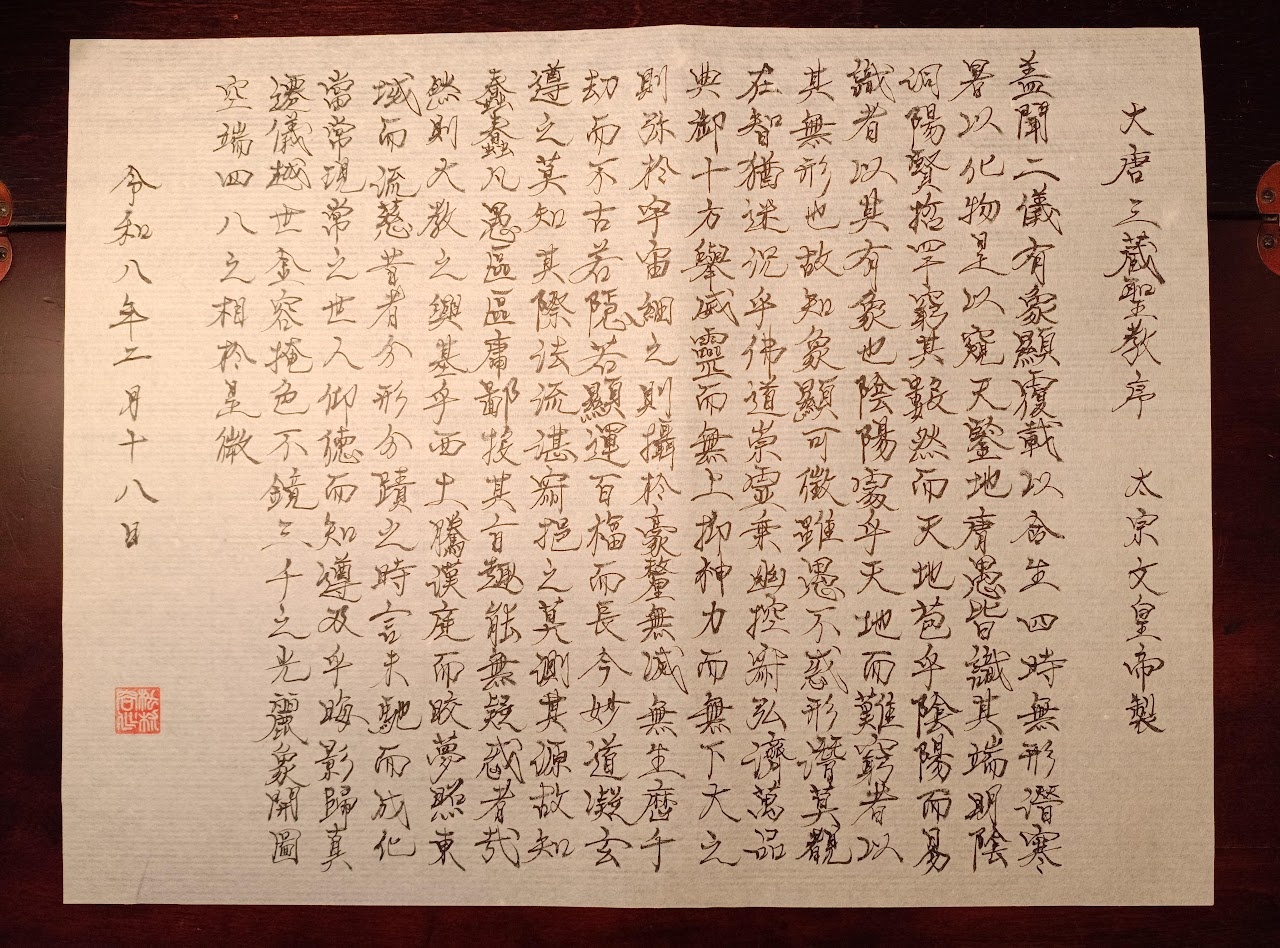 大唐三藏聖教序　太宗文皇帝製
盖聞二儀有象顯覆載以含生四時無形潛寒
暑以化物是以窺天鑒地庸愚皆識其端明陰
洞陽賢哲罕窮其數然而天地苞乎陰陽而易
識者以其有象也陰陽處乎天地而難窮者以
其無形也故知象顯可徵雖愚不惑形潛莫覩
在智猶迷況乎佛道崇虛乗幽控寂弘濟萬品
典御十方舉威靈而無上抑神力而無下大之
則弥於宇宙細之則攝於豪釐無滅無生歷千
劫而不古若隱若顯運百福而長今妙道凝玄
遵之莫知其際法流湛寂挹之莫測其源故知
蠢蠢凡愚區區庸鄙投其旨趣能無疑惑者哉
然則大教之興基乎西土騰漢庭而皎夢照東
域而流慈昔者分形分蹟之時言未馳而成化
當常現常之世人仰德而知遵及乎晦影歸真
遷儀越世金容掩色不鏡三千之光麗象開圖
空端四八之相於是微
令和八年二月十八日